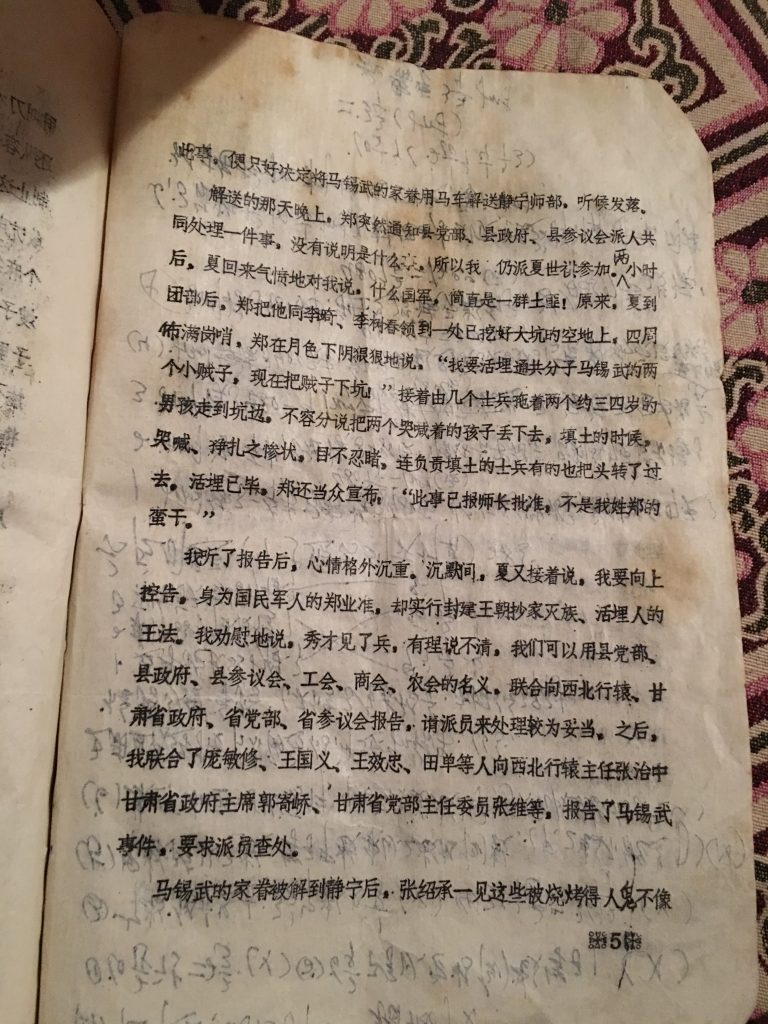 此事。便只好决定将马锡武的家眷用马车解送静宁师部，听候发落。
解送的那天晚上，郑突然通知县党部、县政府、县参议会派人共
同处理一件事，没有说明是什么 所以我 仍派夏世 参加。两小时
后，夏回来气愤地对我说，什么国军，简直是一群土匪！原来，夏到
团部后，郑把他同李 、李树春领到一处已挖好大坑的空地上，四周
布满岗哨，郑在月色下阴狠狠地说，“我要活埋通共分子马锡武的两
个小贼子，现在把贼子下坑！”接着由几个士兵拖着两个约三四岁的
男孩走到坑边，不容分说把两个哭喊着的孩子丢下去，填土的时候，
哭喊、挣扎之惨状，目不忍睹，连负责填土的士兵有的也把头转了过
去。活埋已毕，郑还当众宣布：“此事已报师长批准，不是我姓郑的
蛮干。”
我听了报告后，心情格外沉重。沉默间，夏又接着说，我要向上
控告。身为国民军人的郑业准，却实行封建王朝抄家灭族、活埋人的
王法。我劝慰地说，秀才见了兵，有理说不清，我们可以用县党部、
县政府、县参议会、工会、商会、农会的名义，联合向西北行辕、甘
肃省政府、省党部、省参议会报告，请派员来处理较为妥当。之后，
我联合了庞敏修、王国义、王效忠、田单等人向西北行辕主任张治中
甘肃省政府主席郭寄峤、甘肃省党部主任委员张维等，报告了马锡武
事件，要求派员查处。
马锡武的家眷被解到静宁后，张绍承一见这些被烧烤得人鬼不像
5